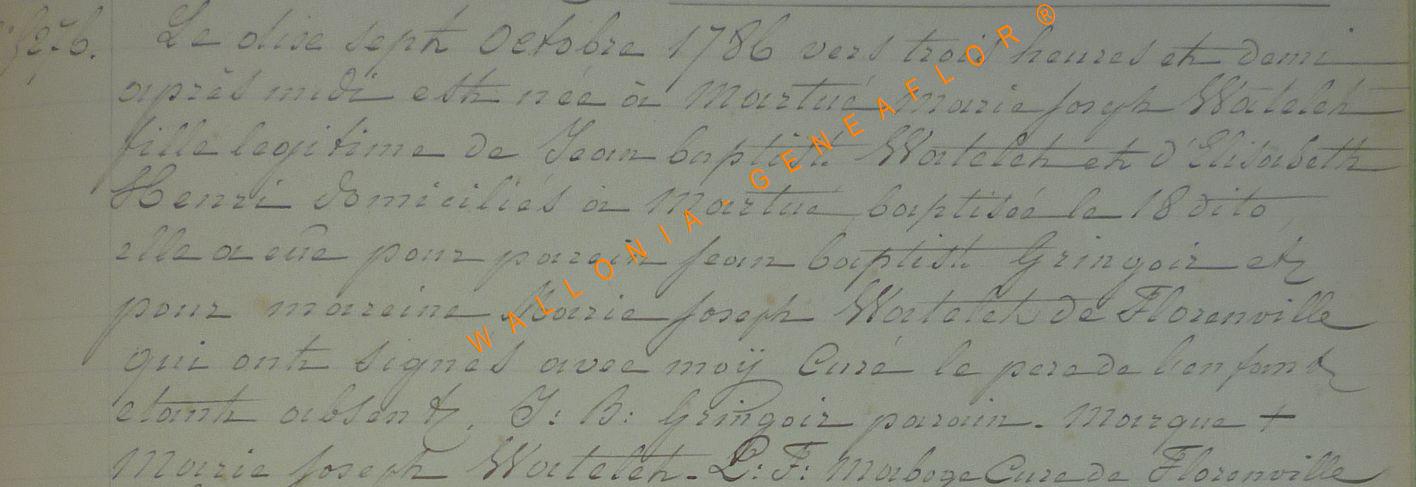 Le dise sept Octobre 1786 vers trois heures et demi
après midi est née à Martué Marie Joseph Watelet
fille legitime de Jean baptist Watelet et d'Elisabeth
Henri domiciliés à Martué baptisée le 18 dito
elle a eue pour parain Jean baptist Gringoir et
pour mareine Marie Joseph Watelet de Florenville
qui ont signés avec moÿ Curé le pere de l'enfant
etant absent. J: B: Gringoir parain. Marque +
Marie Joseph Watelet. L: F: Maboge Curé de Florenville
WALLONIA-GENEAFLOR ®